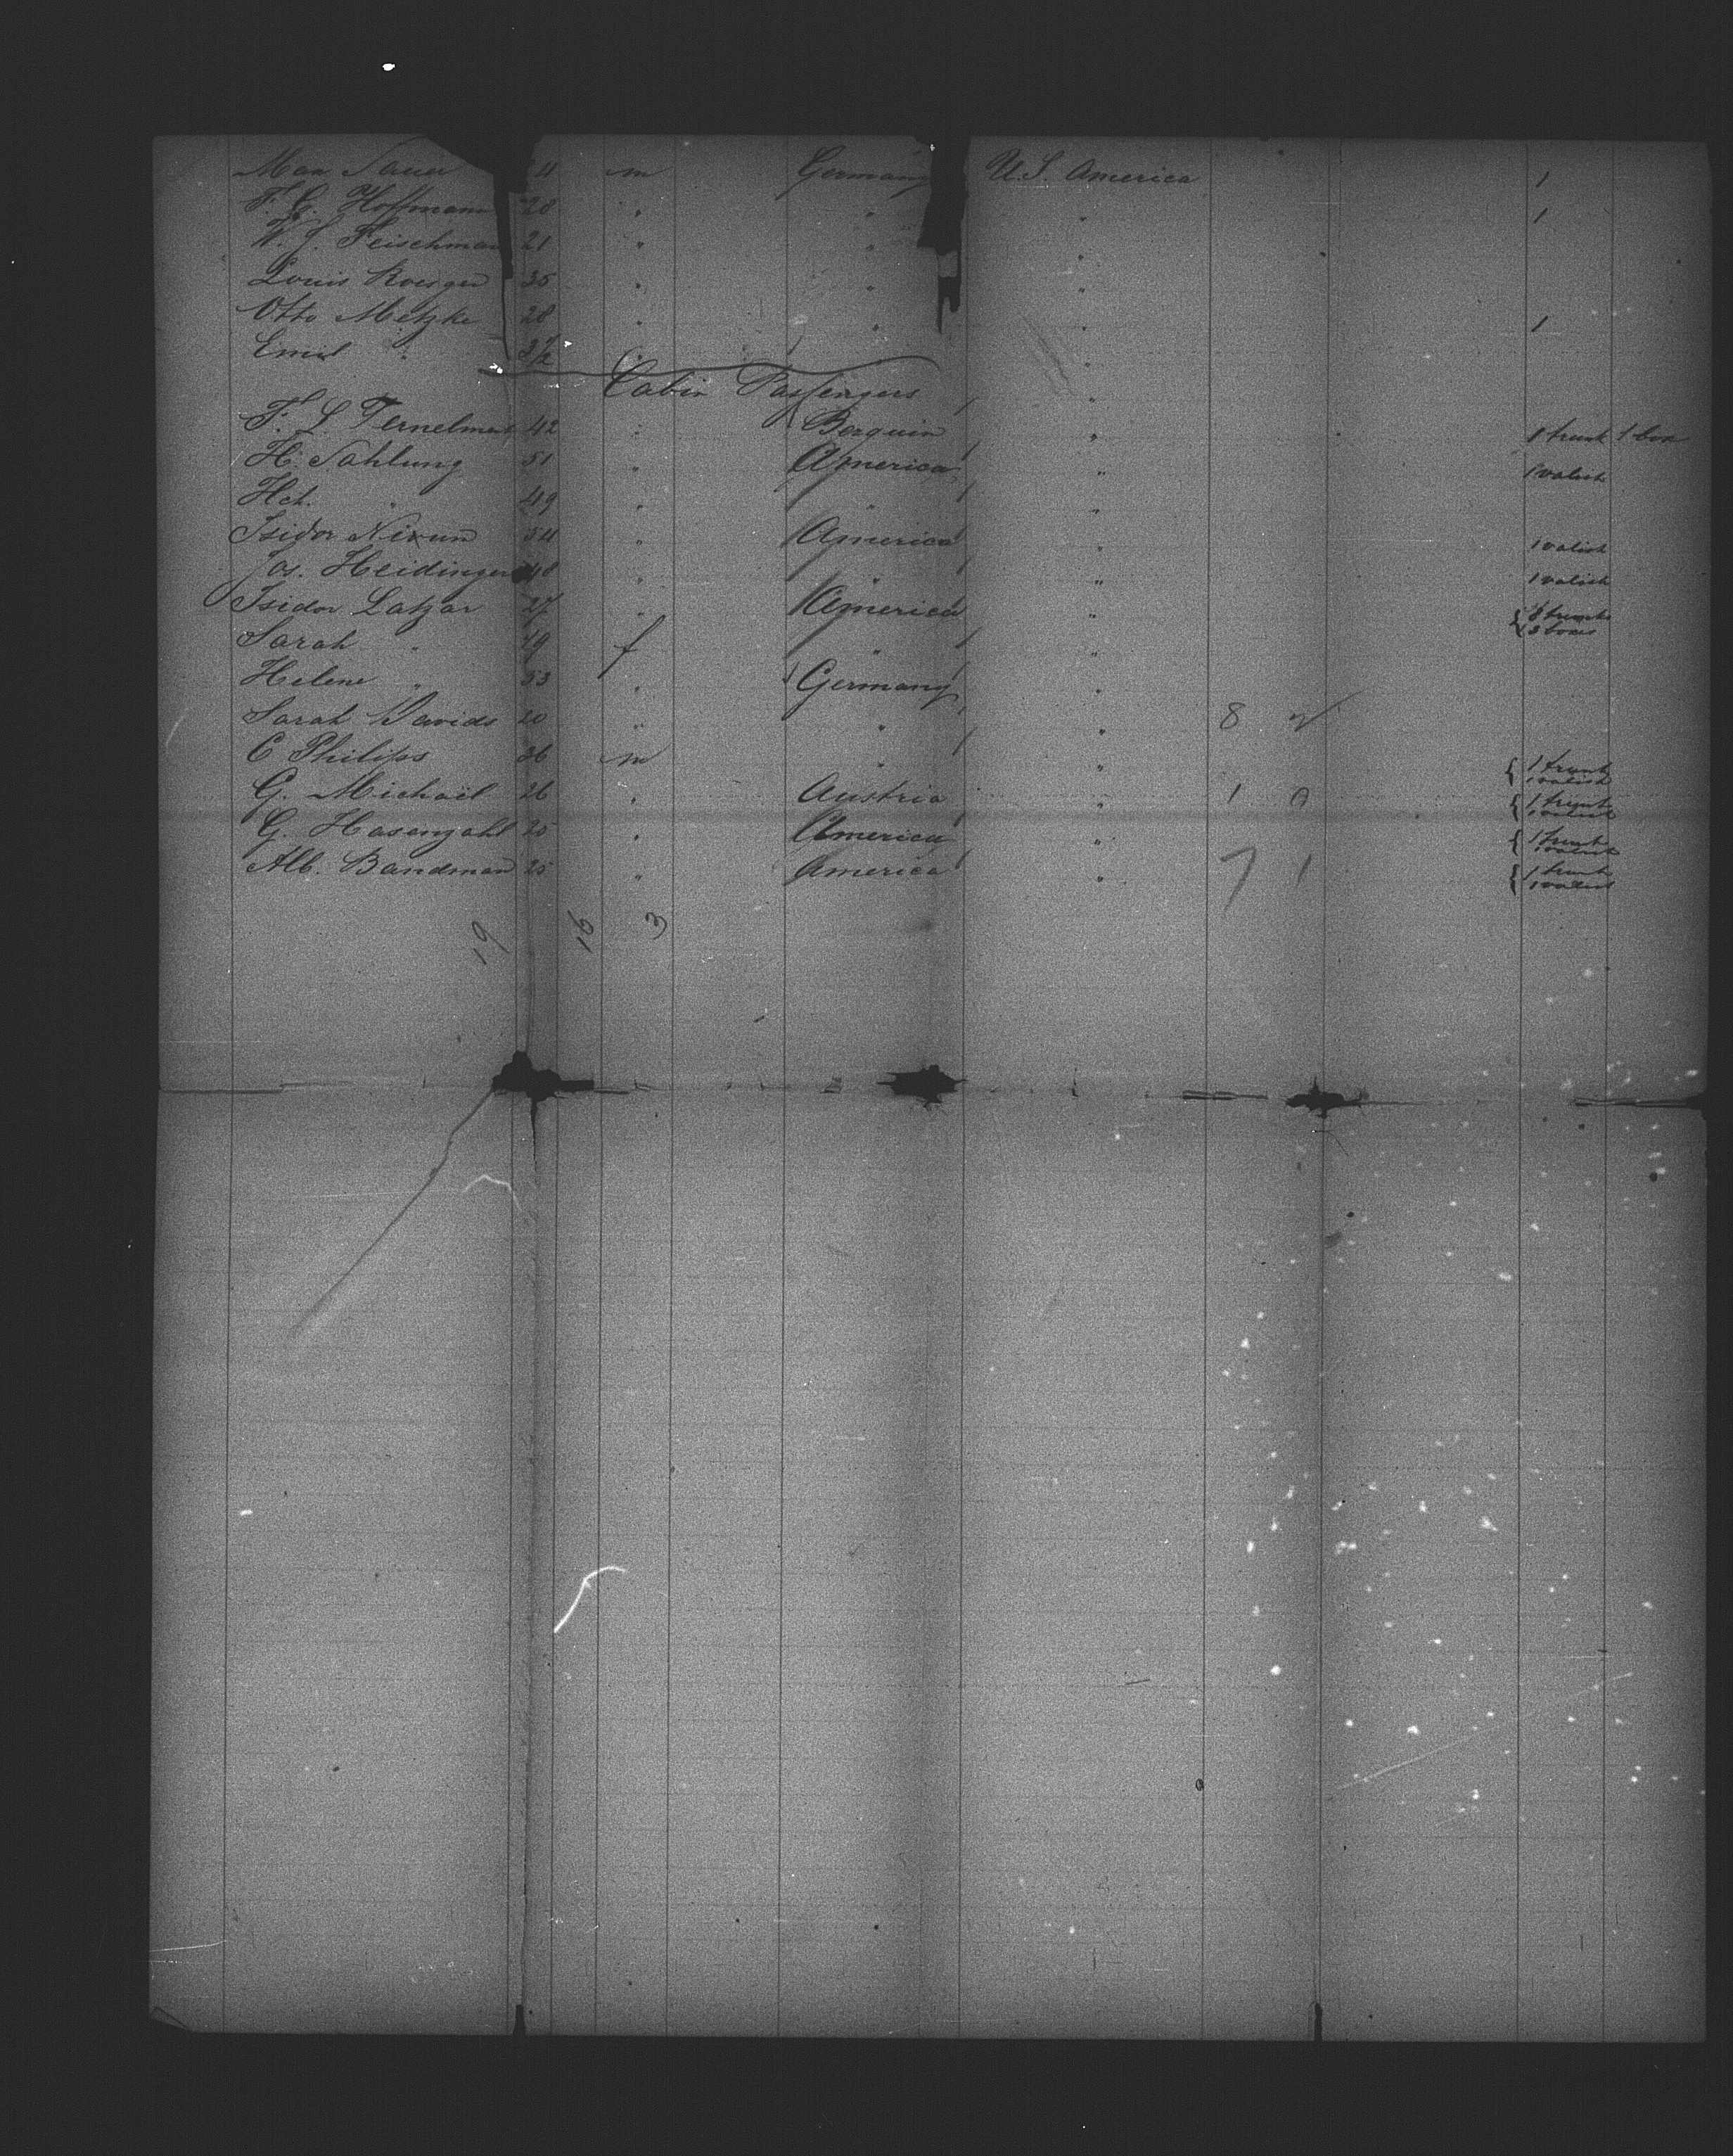 Max Sauer m Germany U.S. America 1
F. G. Hoffmann 28 " " " 1
W. J. Feischman 21 " " "
Louis Roesger 35 " " "
Otto Metzke 28 " " " 1
Emil " "
Cabin Passengers "
F. L. Ternelment 42 " " 1 trunk 1 box
H. Sahlung 51 " America " 1 valish
Hch. " 49 " " "
Isidor Nixum 54 " America " 1 valish
Jos. Heidinger 48 " " " 1 valish
Isidor Latzar 27 " America " trunks
3 boxes
Sarah " 19 f " "
Helene " 53 " Germany "
Sarah Davids 20 " " " 8
C Philips 36 m " " 1 trunk
1 valish
G. Michaël 26 " Austria " 1 0 1 trunk
1 valish
G. Hasenzahl 25 " America " 1 trunk
1 valish
Alb. Bandman 25 " America " 7 1 1 trunk
1 valish
19 16 3